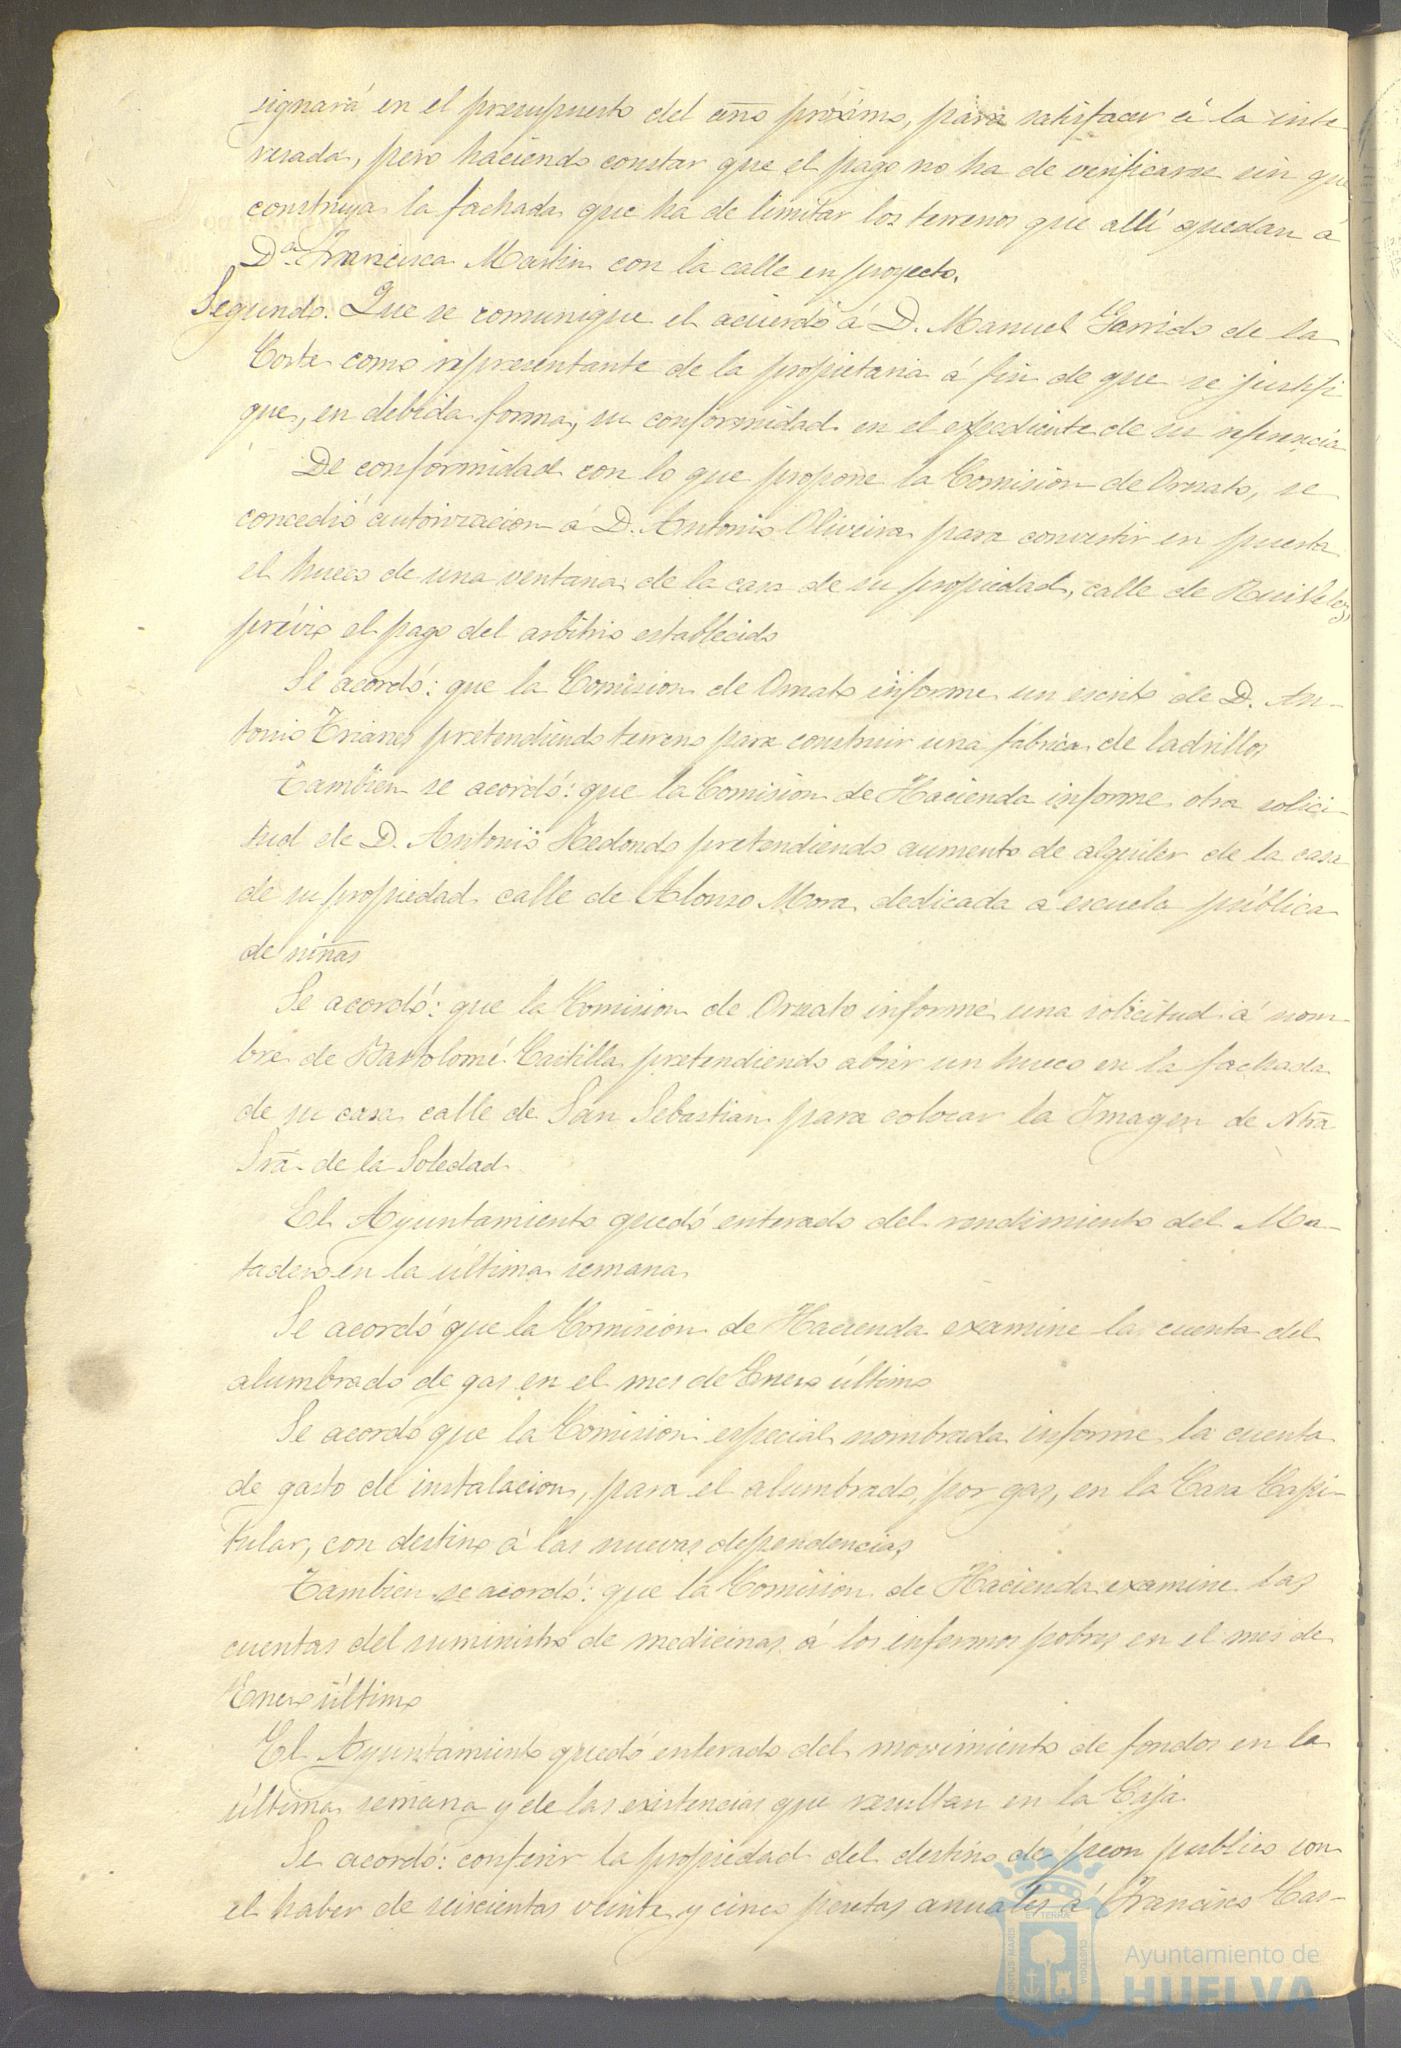 signará en el presupuesto del año próximo, para satisfacer á la inte-
resada, pero haciendo constar que el pago no ha de verificarse sin que
construya la fachada que ha de limitar los terrenos que allí quedan á
Dª Francisca Martin con la calle en proyecto.
Segundo. Que se comunique el acuerdo á D. Manuel Garrido de la
Corte como representante de la propietaria á fin de que se justifi
que, en debida forma, su conformidad en el expediente de su referencia
De conformidad con lo que propone la Comision de Ornato, se
concedió autorizacion á D. Antonio Oliveira para convertir en puerta
el hueco de una ventana de la casa de su propiedad, calle de Rui Velez,
prévio el pago del arbitrio establecido
Se acordó: que la Comision de Ornato informe un escrito de D. An-
tonio Trianes pretendiendo terreno para construir una fábrica de ladrillos
Tambien se acordó: que la Comision de Hacienda informe otra solici-
tud de D. Antonio Redondo pretendiendo aumento de alquiler de la casa
de su propiedad calle de Alonso Mora, dedicada á escuela pública
de niñas
Se acordó: que la Comision de Ornato informe una solicitud á nom-
bre de Bartolomé Castilla pretendiendo abrir un hueco en la fachada
de su casa calle de San Sebastian para colocar la Imagen de Ntra
Sra de la Soledad.
El Ayuntamiento quedó enterado del rendimiento del Ma-
tadero en la última semana
Se acordó que la Comision de Hacienda examine la cuenta del
alumbrado de gas en el mes de Enero último
Se acordó que la Comision especial nombrada informe la cuenta
de gasto de instalacion, para el alumbrado, por gas, en la Casa Capi-
tular, con destino á las nuevas dependencias
Tambien se acordó: que la Comision de Hacienda examine las
cuentas del suministro de medicinas á los enfermos pobres en el mes de
Enero último
El Ayuntamiento quedó enterado del movimiento de fondos en la
última semana y de las existencias que resultan en la Caja
Se acordó: conferir la propiedad del destino de peon publico con
el haber de seiscientas veinte y cinco pesetas anuales á Francisco Cas-
Ayuntamiento de
HUELVA